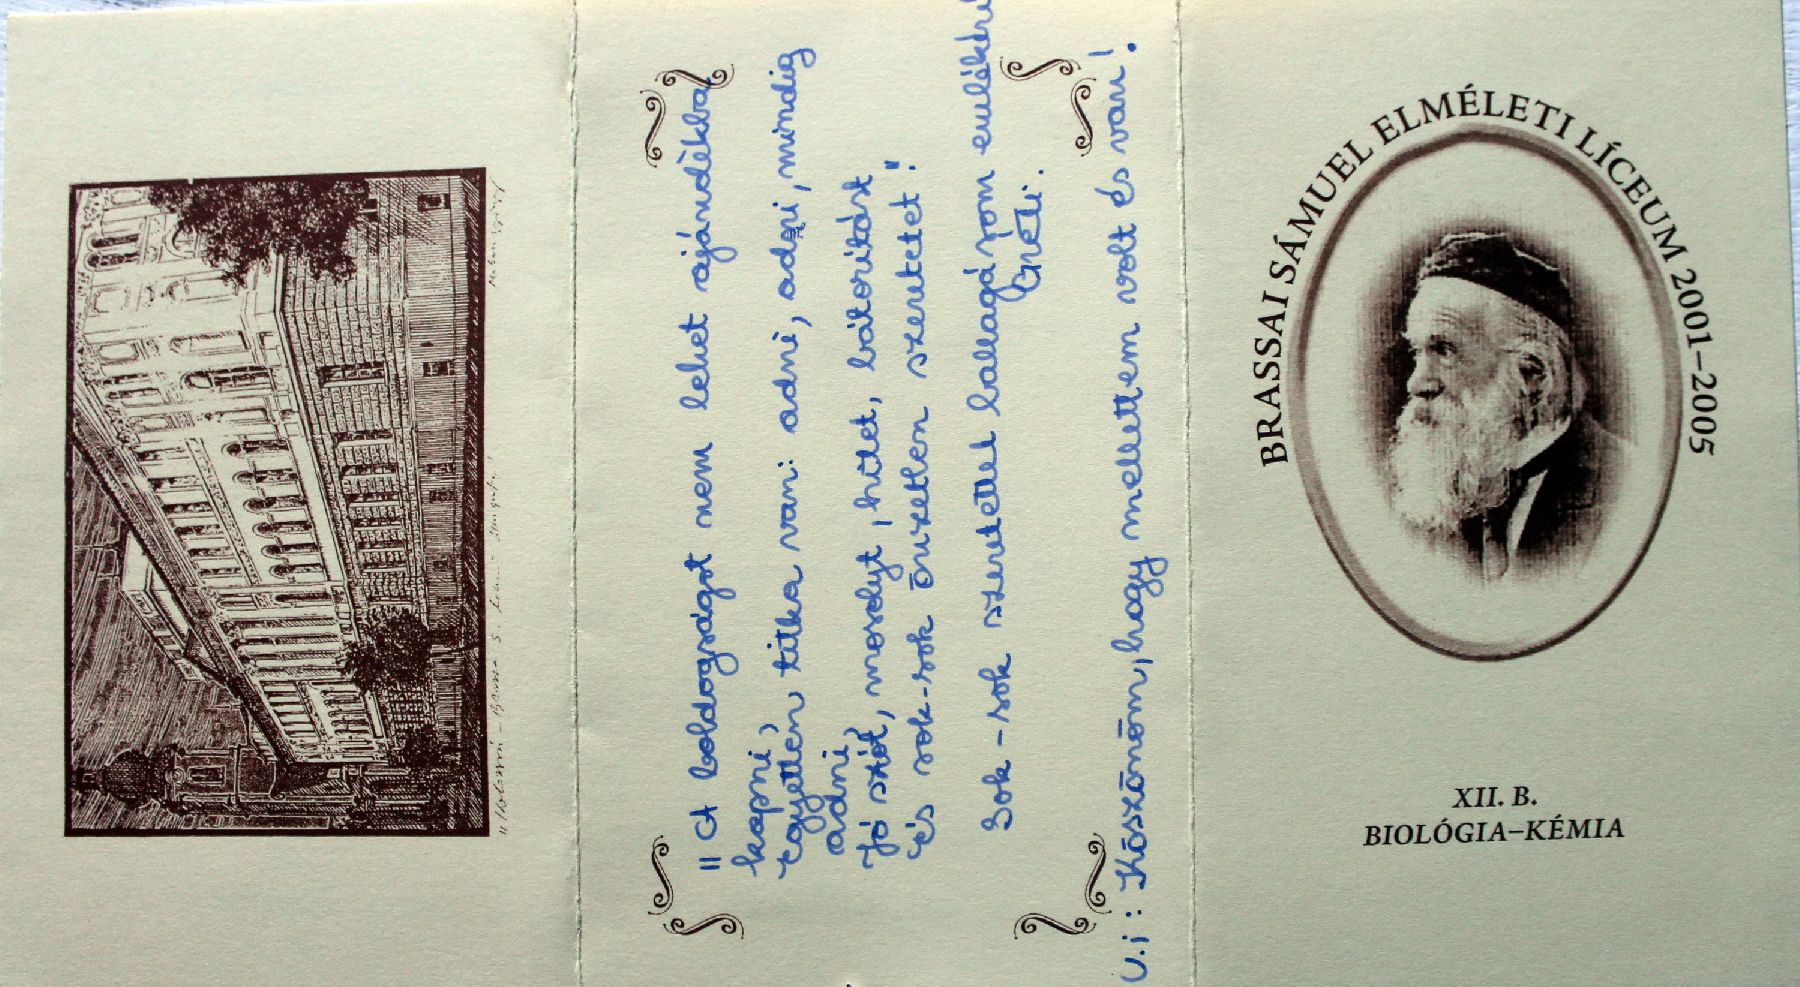 "A boldogságot nem lehet ajándékba
kapni,
Egyetlen titka van: adni, adni, mindig
adni,
Jó szót, mosolyt, hitet, bátorítást
és sok-sok önzetlen szeretetet!"
Sok-sok szeretettel ballagásom emlékére
Gréti.
U.i: Köszönöm, hogy mellettem volt és van!
BRASSAI SÁMUEL ELMÉLETI LÍCEUM 2001–2005
XII. B.
BIOLÓGIA–KÉMIA